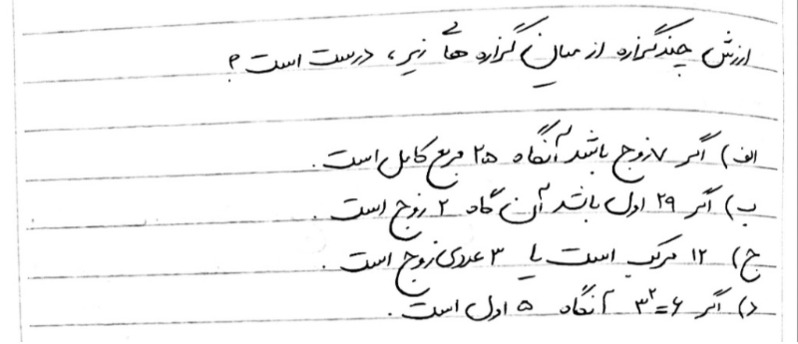 ارزش چند گزاره از میان گزاره های زیر، درست است؟
الف) اگر ۷ زوج باشد آنگاه ۲۵ مربع کامل است.
ب) اگر ۲۹ اول باشد آن گاه ۲ زوج است.
ج) ۱۲ مرکب است یا ۳ عددی زوج است.
د) اگر ۳²=۶ آنگاه ۵ اول است.